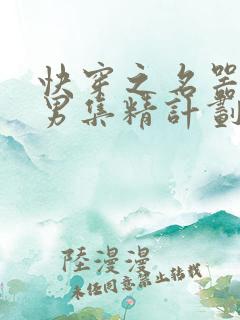 快穿之名器
男集精計劃
陸漫漫
未經同意禁止轉載